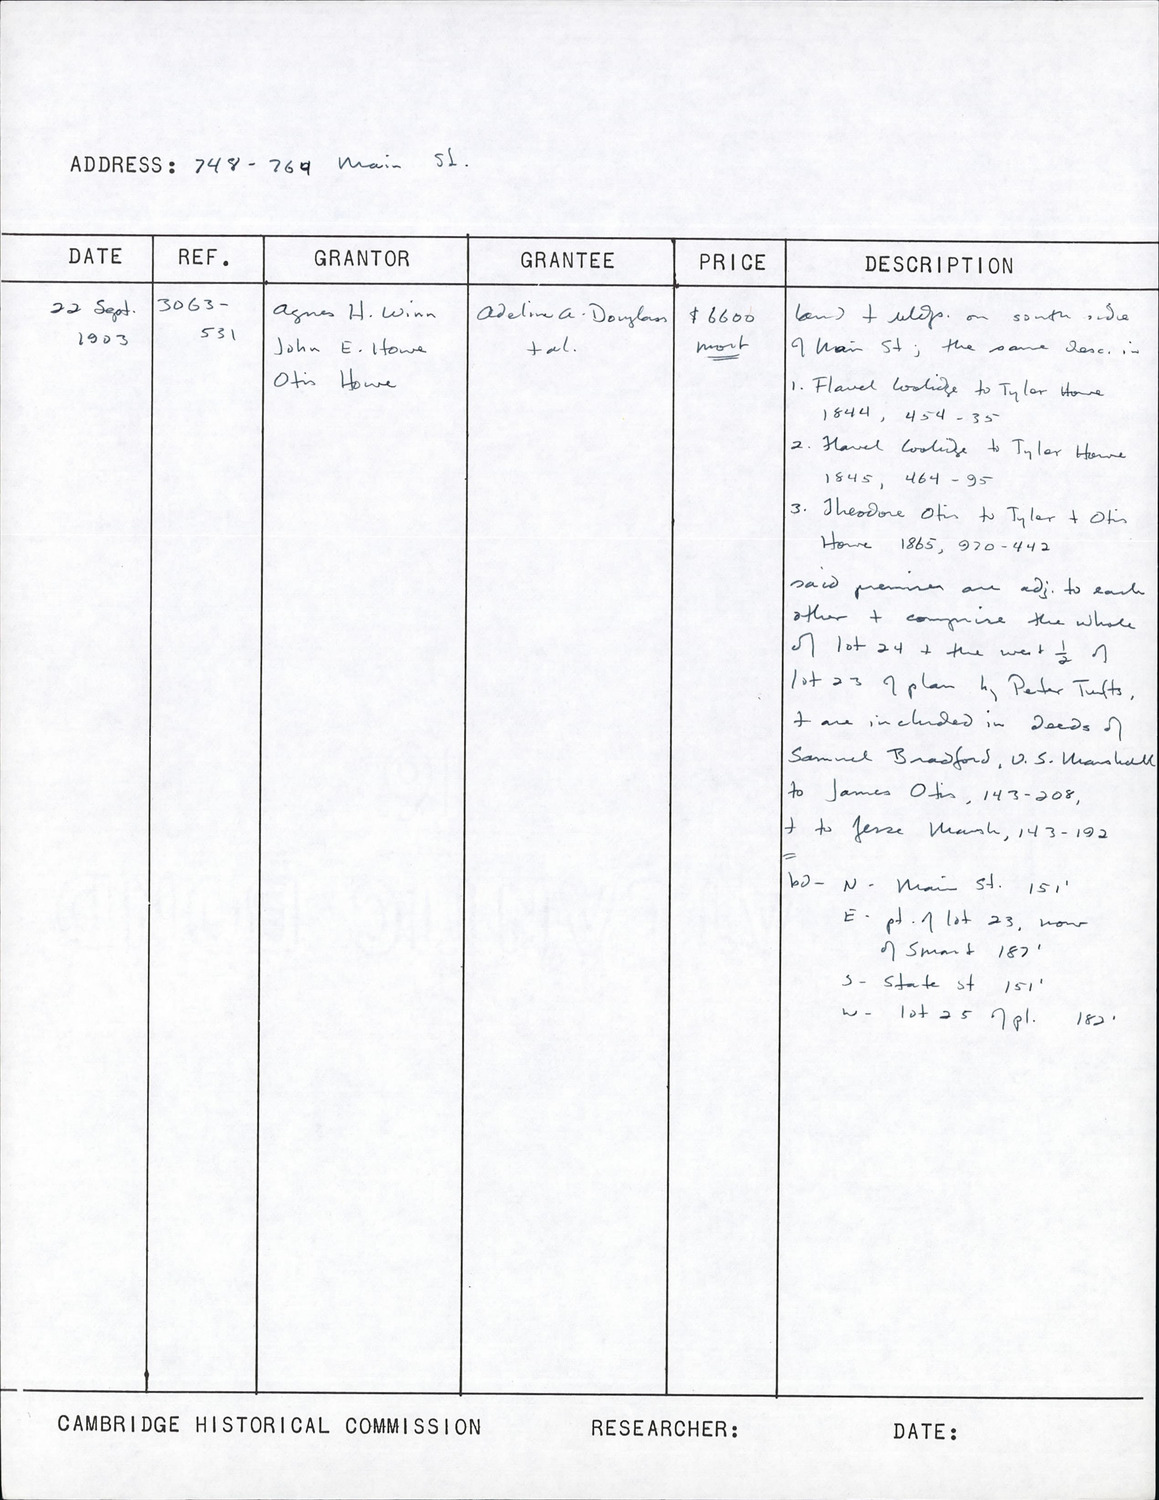 ADDRESS: 748-764 Main St.
DATE REF. GRANTOR GRANTEE PRICE DESCRIPTION
22 Sept.
1903
3063-
531
Agnes H. Winn
John E. Howe
Otis Howe
Adeline A. Douglass
et al.
$6600
mort
land + bldgs. on south side
of Main St; the same desc. in
1. Flavel Coolidge to Tyler Howe
1844, 454-35
2. Flavel Coolidge to Tyler Howe
1845, 464-95
3. Theodore Otis to Tyler + Otis
Howe 1865, 970-442
said premises are adj. to each
other + comprise the whole
of lot 24 + the west ½ of
lot 23 of plan by Peter Tufts,
+ are included in deeds of
Samuel Bradford, U.S. Marshall
to James Otis, 143-208,
+ to Jesse Marsh, 143-192
=
bd- N- Main St. 151'
E- pt. of lot 23, now
of Smart 182'
S- State st 151'
W- lot 25 of pl. 182'
CAMBRIDGE HISTORICAL COMMISSION RESEARCHER: DATE: